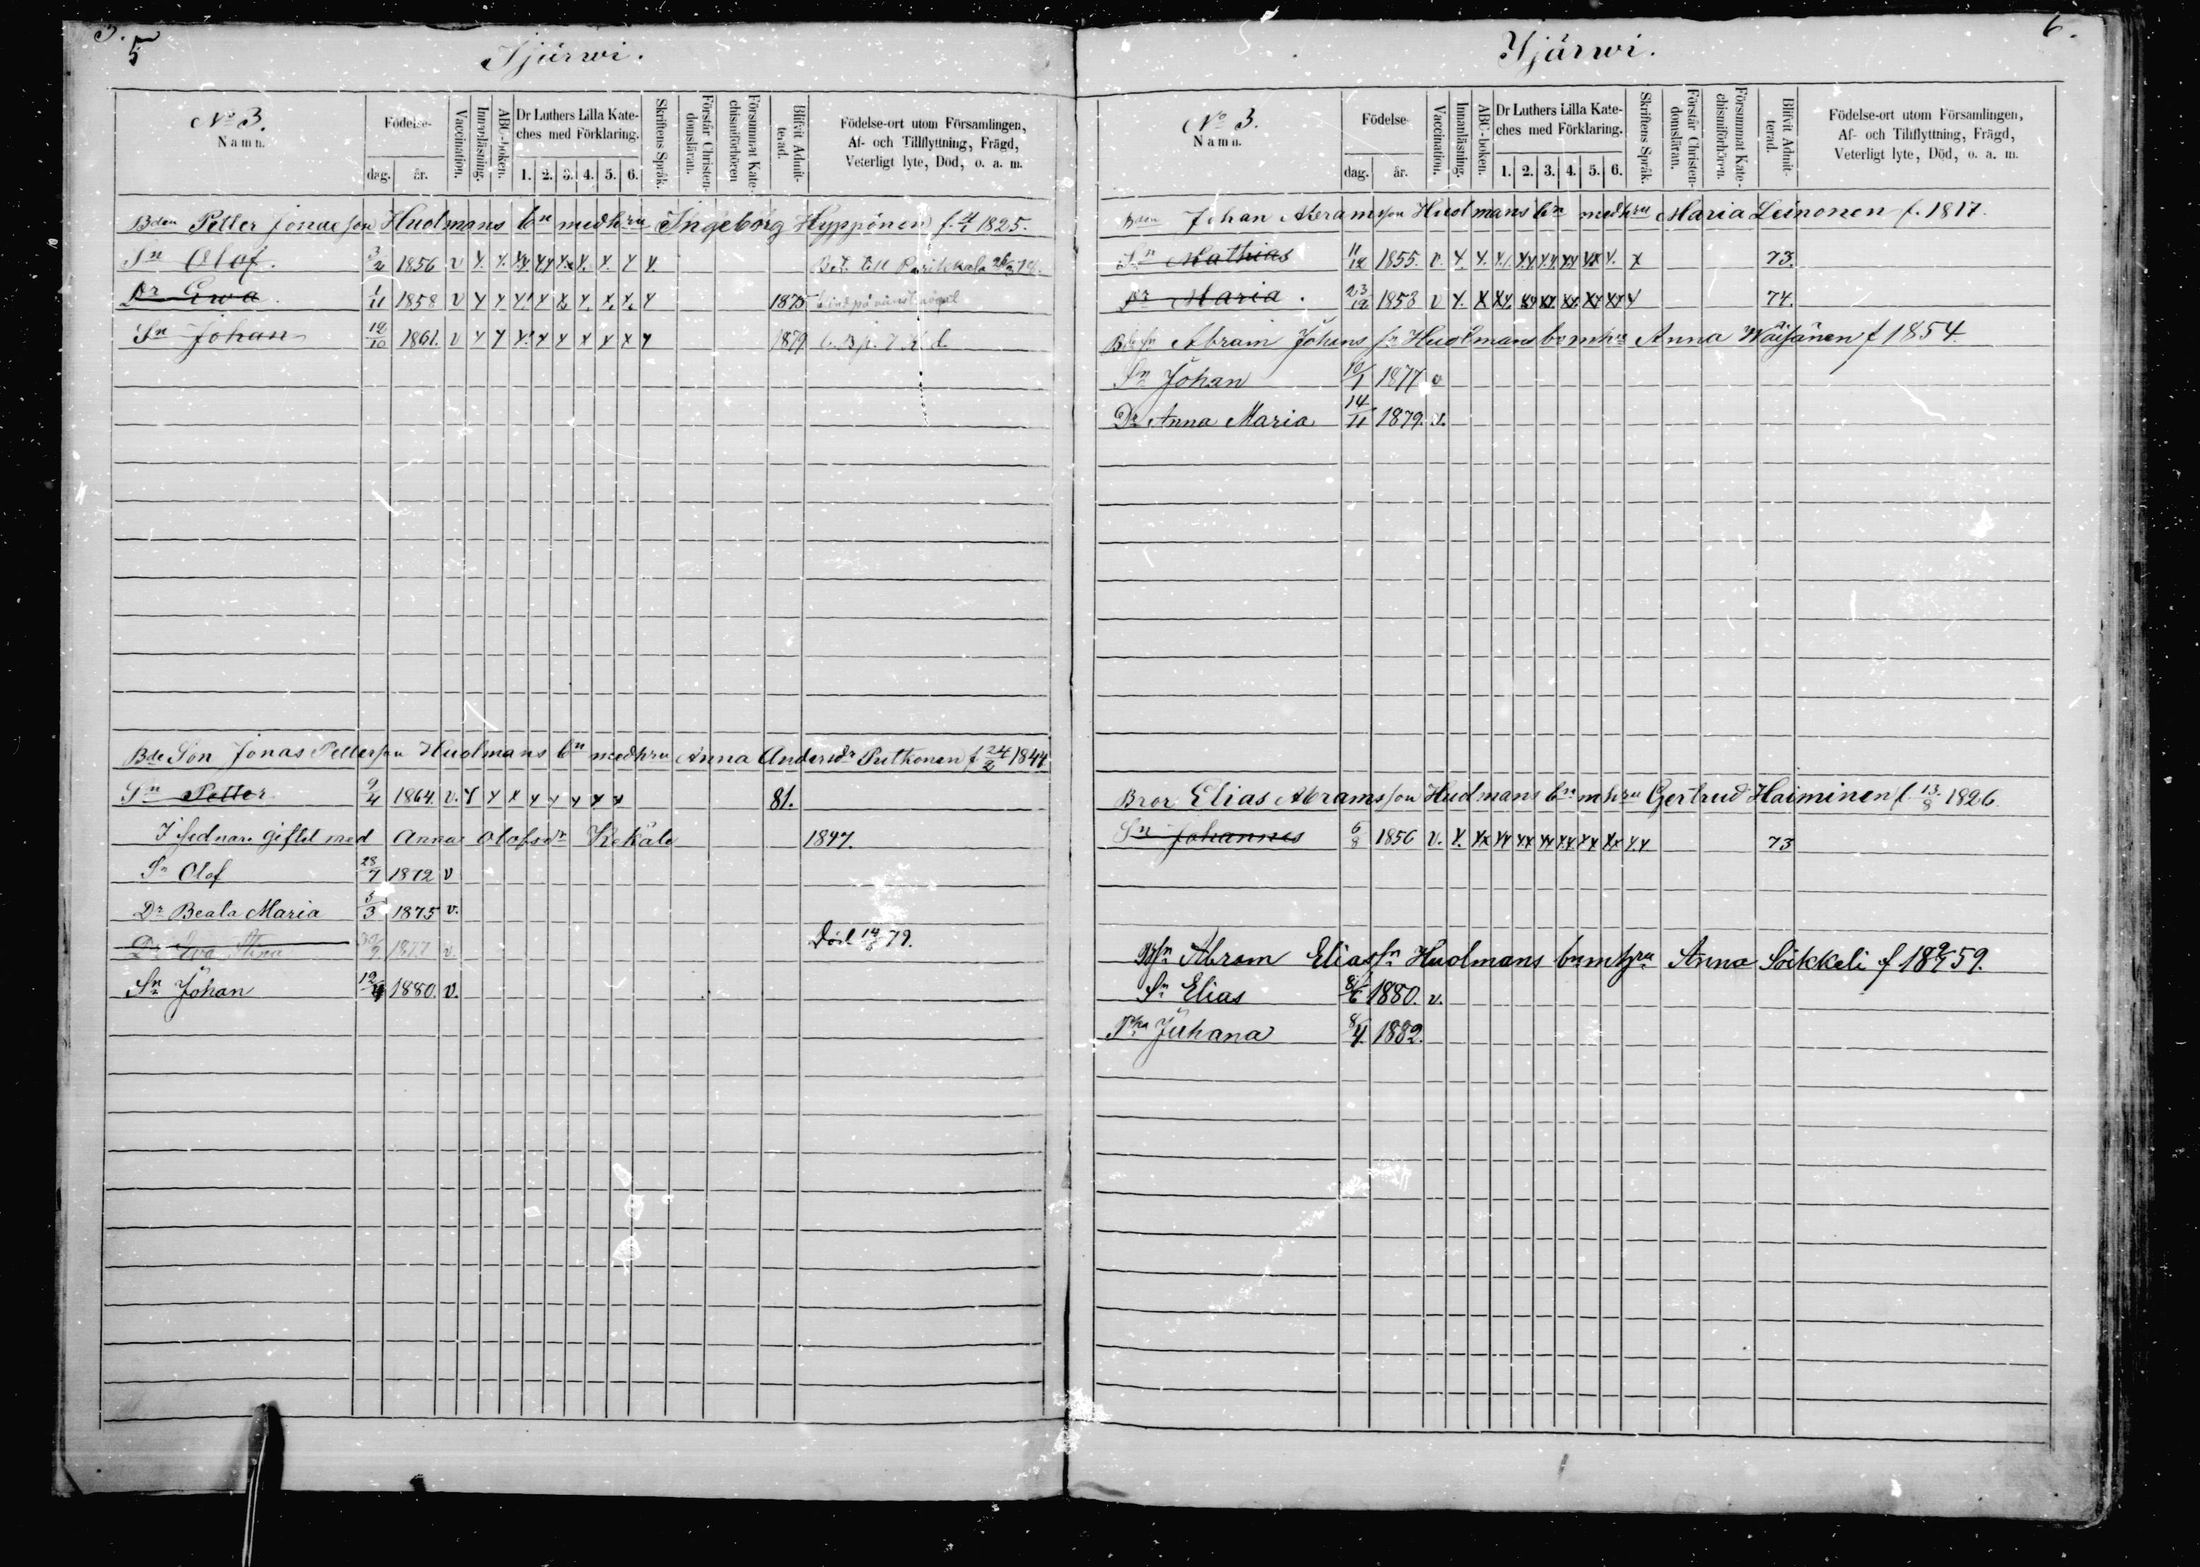 5.
5
Ijärwi.
No 3.
Namn.
Födelse-
dag. år.
Vaccination.
Innanläsning.
ABC-boken.
Dr Luthers Lilla Kate-
ches med Förklaring.
1. 2. 3. 4. 5. 6.
Skriftens Språk.
Förstår Christen-
domsläran.
Försummat Kate-
chismiförhören
Blifvit Admit-
terad.
Födelse-ort utom Församlingen,
Af- och Tillflyttning, Frägd,
Veterligt lyte, Död, o. a. m.
Bden Petter Jonasson Huolmans bn medhru Ingeborg Hyppönen f. 4/1 1825.
Sn Olof. 3/2 1856 v x. x. xx. xx xx x. x. x x. Bet. till Parikkala
Dr Ewa 1/11 1858 v x x x x x x. x x x 1875
Sn Johan 12/10 1861. v x x x x x x x x x 1879
Bde Son Jonas Pettersson Huolmans bn medhru Anna Andersdr Putkonen f 24/2 1844
Sn Petter 9/4 1864. v. x x x x x x x x 81.
I sednare giftet med Anna Olofsdr Kekäle 1847.
Sn Olof 28/7 1872 v
Dr Beata Maria 5/3 1875 v.
Dr Eva Stina 1877 v. Död 79.
Sn Johan 12/4 1880. v.
6.
Ijärwi.
No 3.
Namn.
Födelse
dag. år.
Vaccination.
Innanläsning.
ABC-boken.
Dr Luthers Lilla Kate-
ches med Förklaring.
1. 2. 3. 4. 5. 6.
Skriftens Språk.
Förstår Christen-
domsläran.
Försummat Kate-
chismiförhören.
Blifvit Admit-
terad.
Födelse-ort utom Församlingen,
Af- och Tillflyttning, Frägd,
Veterligt lyte, Död, o. a. m.
Bden Johan Abramsson Huolmans bn medhru Maria Leinonen f. 1817.
Sn Mathias 11/12 1855. v. x. x. xx. xx xx xx xx x. x 73.
Dr Maria. 23/12 1858 v x. x xx. xx xx xx. xx xx x 74.
Bdesn Abram Johanssn Huolmans bn mhru Anna Wäisänen f 1854.
Sn Johan 10/1 1877 v
Dr Anna Maria 14/11 1879. v.
Bror Elias Abramsson Huolmans bn mhru Gertrud Haiminen f. 13/8 1826.
Sn Johannes 6/8 1856 v. x. xx xx xx xx xx xx xx xx 73
Abram Eliassn Huolmans bn mhru Anna Sikkeli f 18 9/7 59.
Sn Elias 8/6 1880. v.
Juhana 8/4. 1882.